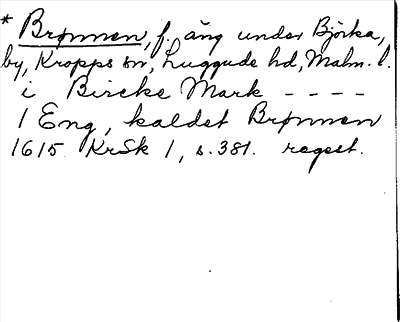 * Brønnen, f. äng under Björka,
by, Kropps sn, Luggude hd, Malm. l.
i Bircke Mark - - - -
1 Eng, kaldet Brønnen
1615 KrSk 1, s. 381. regest.